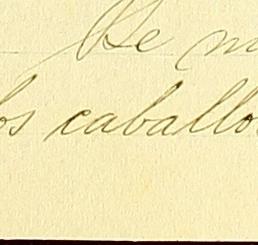 He m
os caballo